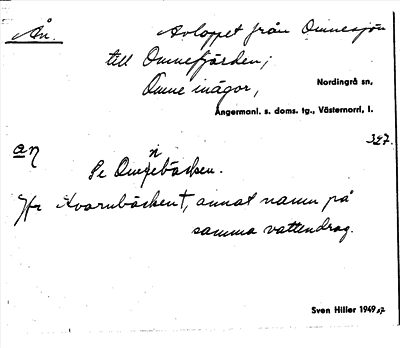 Ån.
Avloppet från Omnesjön
till Omnefjärden;
Omne inägor,
Nordingrå sn,
Ångermanl. s. doms. tg., Västernorrl, l.
327.
Se Omnebäcken.
Jfr Kvarnbäcken†, annat namn på
samma vattendrag.
Sven Hiller 1949